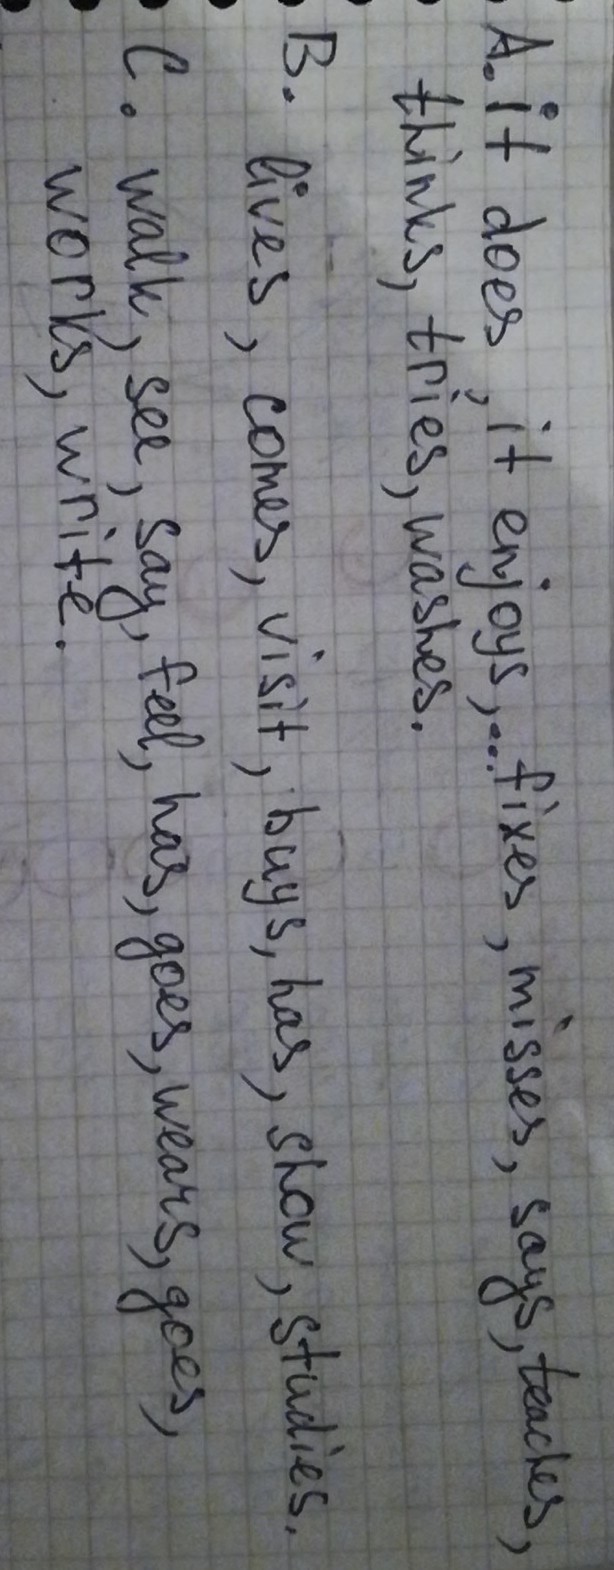 A. it does, it enjoys,... fixes, misses, says, teaches,
thinks, tries, washes.
B. lives, comes, visit, buys, has, show, studies.
C. walk, see, say, feel, has, goes, wears, goes,
works, write.